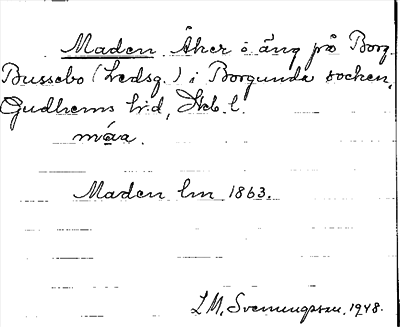 Maden Åker o äng på Borg-
Bussebo (Ledsg.) i Borgunda socken,
Gudhems hd, Skb. l.
måa.
Maden lm 1863.
L M. Svenungsson. 1948.